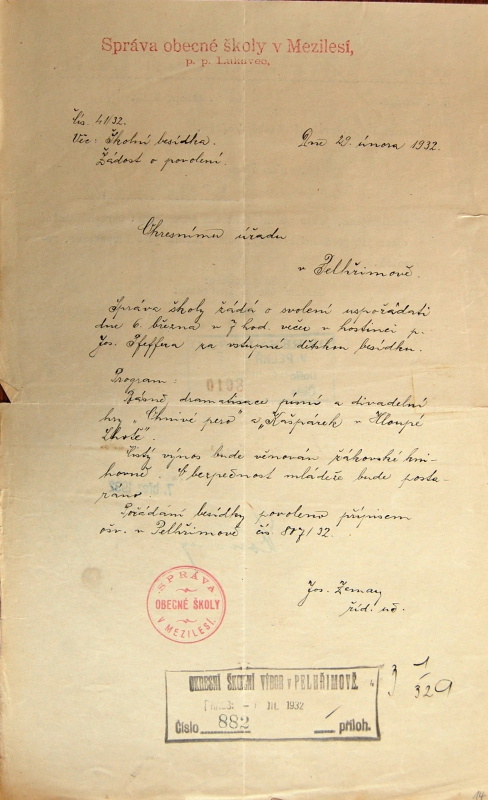 Správa obecné školy v Mezilesí,
p. p. Lukavec,
Čís. 41/32.
Věc: Školní besídka.
Žádost o povolení.
Dne 29. února 1932.
Okresnímu úřadu
v Pelhřimově.
Správa školy žádá o svolení uspořádati
dne 6. března v 7 hod. večer v hostinci p.
Jos. Pfeffera za vstupné dětskou besídku.
Program:
Básně, dramatisace písní a divadelní
hry „Chnivé pero" a „Kašpárek v Hloupé
Lhotě".
Čistý výnos bude věnován žákovské kni-
hovně. O bezpečnost mládeže bude posta-
ráno.
Pořádání besídky povoleno přípisem
ošv. v Pelhřimově čís. 807/32.
SPRÁVA
OBECNÉ ŠKOLY
V MEZILESÍ.
Jos. Zeman
říd. uč.
OKRESNÍ ŠKOLNÍ VÝBOR v PELHŘIMOVĚ.
III. 1932
Číslo 882 příloh.
3 1/329
114